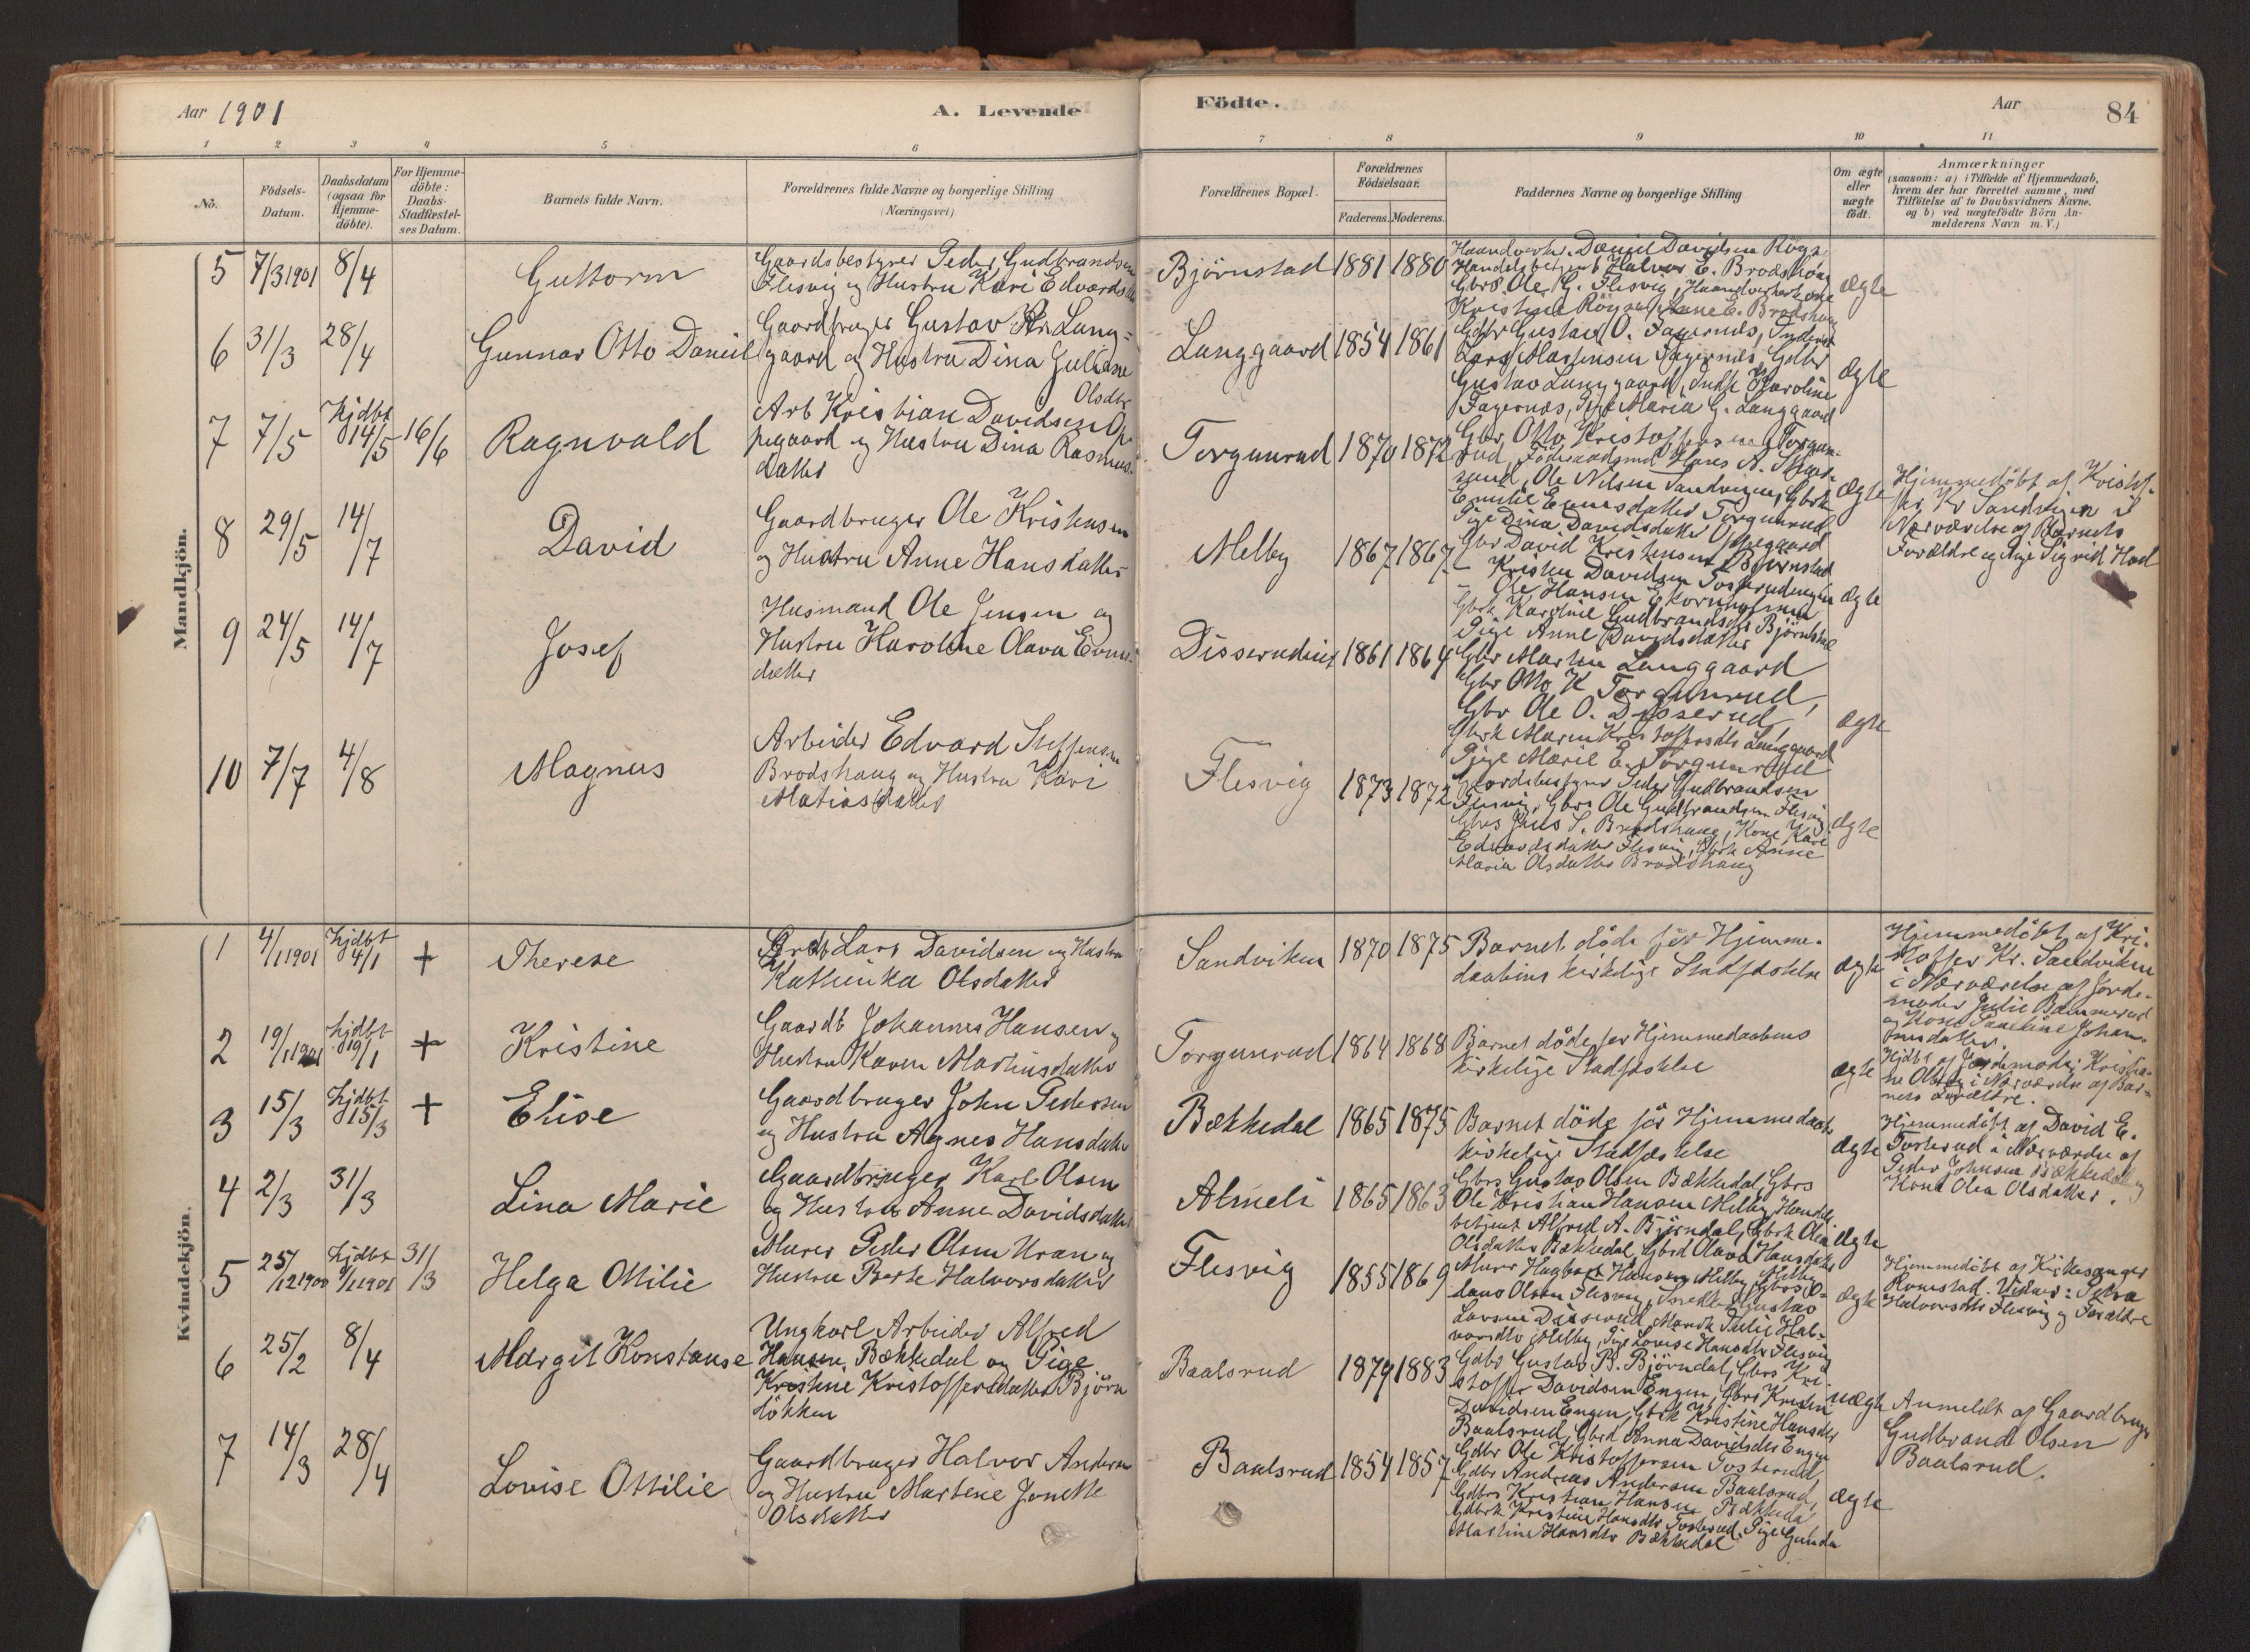 Aar 1901
A. Levende
Födte.
Aar
84
1 2 3 4 5 6 7 8 9 10 11
No.
Födsels-
Datum.
Daabsdatum
(ogsaa for
Hjemme-
döbte).
For Hjemme-
döbte:
Daabs-
Stadfæstel-
ses Datum.
Barnets fulde Navn.
Forældrenes fulde Navne og borgerlige Stilling
(Næringsvei)
Forældrenes Bopæl.
Forældrenes
Födselsaar.
Faderens. Moderens.
Faddernes Navne og borgerlige Stilling
Om ægte
eller
uægte
födt.
Anmærkninger
(saasom: a) i Tilfælde af Hjemmedaab,
hvem der har forrettet samme, med
Tilföielse af to Daabsvidners Navne.
og b) ved uægtefödte Börn An-
melderens Navn m. V.)
Mandkjön.
5 7/3 1901 8/4
Guttorm
Gaardsbestyrer Peder Gudbrandsen
Flesvig og Hustru Kari Edvardsdtr
Bjørnstad 1881 1880
Haandverker Daniel Davidsen
Handelsbetjent Halvor E. Brodshaug
Gbrs Ole G. Flesvig, Haandverkerkone
Kristine Anne E. Brodshaug
ægte
6 31/3 28/4
Gunnar Otto Daniel
Gaardbruger Gustav Kr. Lang-
gaard og Hustru Dina Juliane
Olsdtr
Langgaard 1854 1861
Gdbr Gustav O. Fagernæs,
Lars Martensen Fagernæs, Gdbr
Gustav Langgaard, Karoline
Fagernæs, Pige Maria G. Langgaard
ægte
7 7/5 Hjdbt 14/5 16/6
Ragnvald
Arb Kristian Davidsen Op-
pegaard og Hustru Dina Rasmus-
datter
Torgunrud 1870 1872
Gbr. Otto Kristoffersen Torgun-
rud, Föderaadsmd Hans A.
Ole Nilsen Sandvigen, Gbrk
Emilie Evensdatter Torgunrud
Pige Dina Davidsdatter Oppegaard
ægte
Hjemmedöbt af Kristof-
fer Kr Sandvigen i
Nærværelse af Barnets
Forældre og Pige Sigrid
8 29/5 14/7
David
Gaardbruger Ole Kristensen
og Hustru Anne Hansdatter
Melby 1867 1867
Gbr David Kristensen Bjørnstad
- Kristen Davidsen Tosterudengen
- Ole Hansen
Gbrk Karoline Gudbrandsdtr Bjørnstad
Pige Anne Davidsdatter
ægte
9 24/5 14/7
Josef
Husmand Ole Jensen og
Hustru Karoline Olava Evens-
datter
Disserudeiet 1861 1864
Gbr Martin Langgaard
Gbr Otto K Torgunrud,
Gbr Ole O. Disserud,
Gbrk Maren Kristoffersdtr Langgaard
Pige Marie E. Torgunrud
ægte
10 7/7 4/8
Magnus
Arbeider Edvard Steffensen
Brodshaug og Hustru Kari
Matiasdatter
Flesvig 1873 1872
Gaardsbestyrer Peder Gudbrandsen
Flesvig, Gbrs Ole Gudbrandsen Flesvig
Gbrs Jens S. Brodshaug, Kone Kari
Edvardsdatter Flesvig, Gbrk Anne
Maria Olsdatter Brodshaug
ægte
Kvindekjön.
1 4/1 1901 Hjdbt 4/1 +
Therese
Lars Davidsen og Hustru
Kathinka Olsdatter
Sandviken 1870 1875
Barnet döde før Hjemme-
daabens kirkelige Stadfæstelse
ægte
Hjemmedöbt af Kri-
stoffer Kr. Sandviken
i Nærværelse af Jorde-
moder Julie
og Kone Johan-
nesdatter.
2 19/1 1901 Hjdbt 19/1 +
Kristine
Gaardb Johannes Hansen og
Hustru Karen Martinsdatter
Torgunrud 1864 1868
Barnet döde før Hjemmedaabens
kirkelige Stadfæstelse
ægte
Hjdbt af Jordemoder Kristia-
ne Olsby i Nærværelse af Bar-
nets Forældre.
3 15/3 Hjdbt 15/3 +
Elise
Gaardbruger John Pedersen
og Hustru Agnes Hansdatter
Bækkedal 1865 1875
Barnet döde før Hjemmedaabs
kirkelige Stadfæstelse
ægte
Hjemmedöbt af David E.
Tosterud i Nærværelse af
Peder Johnsen Bækkedal og
Kone Olea Olsdatter.
4 2/3 31/3
Lina Marie
Gaardbruger Karl Olsen
og Hustru Anne Davidsdatter
Almeli 1865 1863
Gbrs Gustav Olsen Bækkedal, Gbrs
Ole Kristian Hansen Melby, Handels
betjent Alfred A. Bjørndal, Gbrk Olia
Olsdatter Bækkedal, Gbrd Olava Hansdatter
Melby
ægte
5 25/12 1900 Hjdbt 9/1 1901 31/3
Helga Otilie
Murer Peder Olsen Uran og
Hustru Berte Halvorsdatter
Flesvig 1855 1869
Murer Hagbart Hansen Melby, Gbrs
Olsen Flesvig, Gustav
Larsen Disserud, Murerk Julie Hal-
vorsdtr Melby, Pige Lovise Hansdtr Flesvig
ægte
Hjemmedöbt af Kirkesanger
Romstad. Vidner: Petra
Halvorsdtr Flesvig og Forældre
6 25/2 8/4
Margit Konstanse
Ungkarl Arbeider Alfred
Hansen Bækkedal og Pige
Kristine Kristoffersdatter Björn
lökken
Baalsrud 1879 1883
Gdbs Gustav B. Björndal, Gbrs Kri-
stoffer Davidsen Engen, Gbrs Kristen
Davidsen Engen, Gbrk Kristine Hansdtr
Baalsrud, Gbrd Anna Davidsdtr Engen
uægte
Anmeldt af Gaardbruger
Gudbrand Olsen
Baalsrud.
7 14/3 28/4
Lovise Otilie
Gaardbruger Halvor Andersen
og Hustru Martene Jonette
Olsdatter
Baalsrud 1854 1857
Gdbr Ole Kristoffersen Tosterud,
Gdbr Andreas Andersen Baalsrud,
Gdbrs Kristian Hansen Bækkedal
Gdbrk Kristine Hansdtr Tosterud, Pige Gunda
Martine Hansdtr Bækkedal
ægte